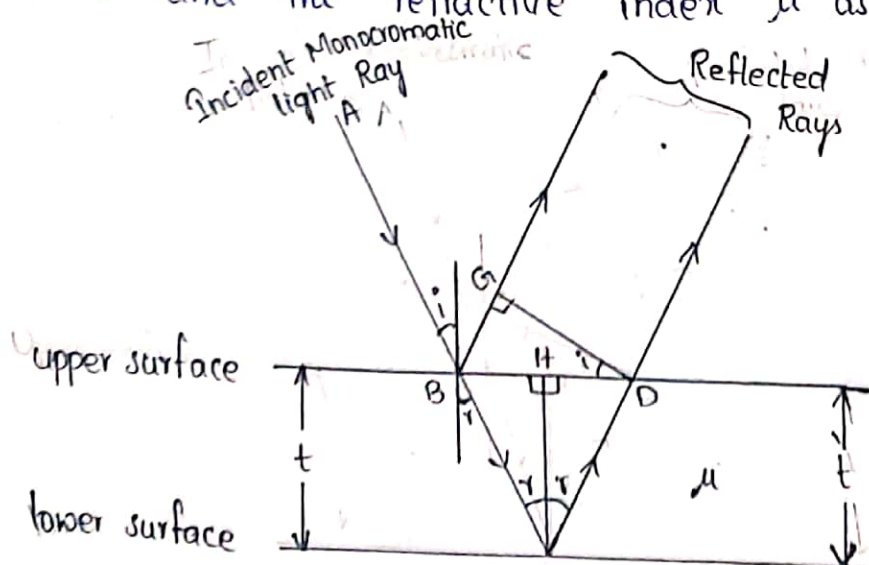 and the refractive index μ as
Incident Monocromatic
light Ray
A
Reflected
Rays
i
G
upper surface
H
i
B
D
r
t
r
r
μ
t
lower surface